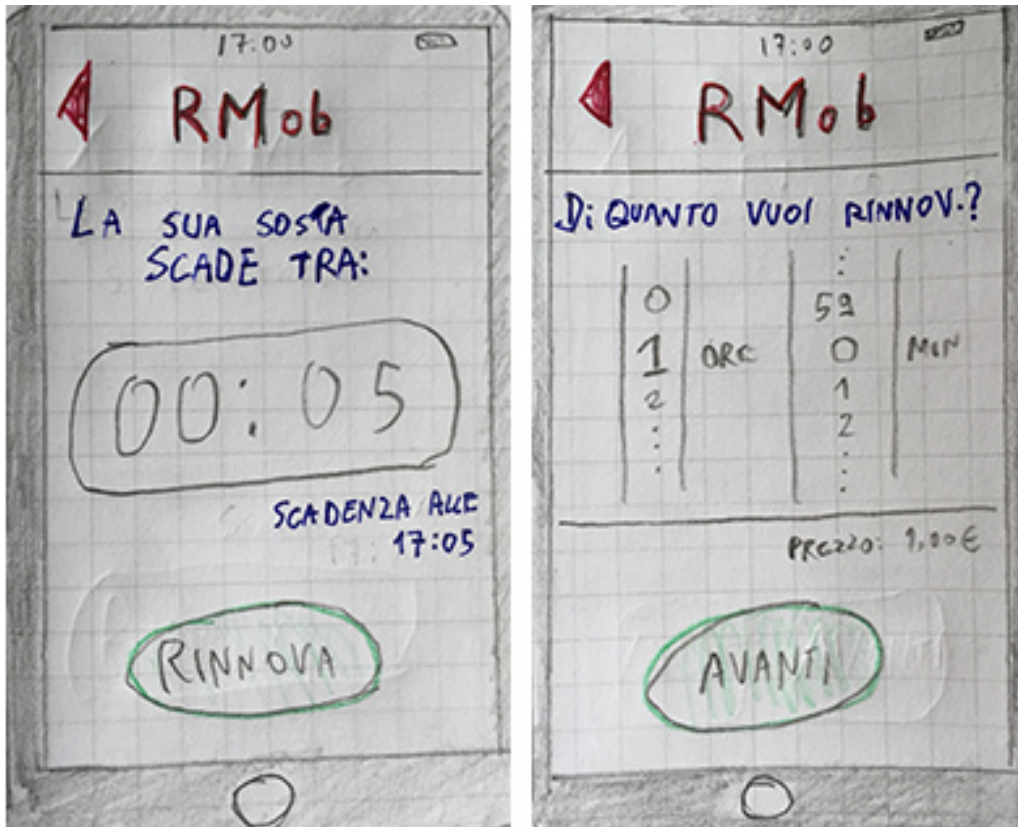 17:00
RMob
LA SUA SOSTA
SCADE TRA:
00:05
SCADENZA ALLE
17:05
RINNOVA
17:00
RMob
Di QUANTO VUOI RINNOV.?
0
1 ORE
2
:
.
:
59
0 MIN
1
2
:
.
PREZZO: 1,00€
AVANTI